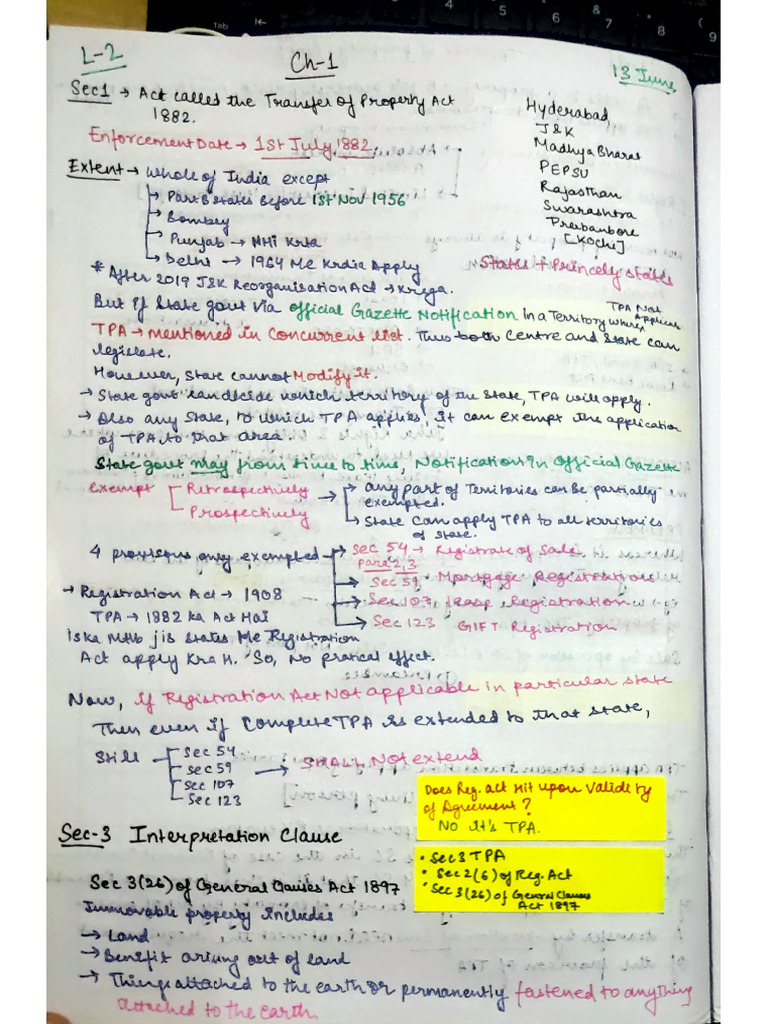 L-2
Ch-1
13 June
Sec1 → Act called the Transfer of Property Act
1882.
Enforcement Date → 1st July, 1882.
Hyderabad,
J&K
Madhya Bharat
PEPSU
Rajasthan
Swarashtra
[Kochi]
States + Princely states
Extent → whole of India except
→ Part B states before 1st Nov 1956
→ Bombay
→ Punjab → NHi Krta
→ Delhi → 1964 Me Krdia Apply
* After 2019 J&K Reorganisation Act → Krega.
But if State govt via official Gazette Notification in a Territory where, TPA Not Applicas
TPA → mentioned in Concurrent list. Thus both Centre and State can
legislate.
However, State cannot Modify it.
→ State govt can decide which territory of the state, TPA will apply.
→ Also any State, to which TPA applies, it can exempt the application
of TPA to that area.
State govt may from time to time, Notification in Official Gazette
exempt
Retrospectively
Prospectively
→ any part of Territories can be partially
exempted.
→ State can apply TPA to all territories
of state.
4 provisions only exempted
→ Sec 54 → Registrate of Sale.
Para 2,3
→ Sec 59 Mortgage Registration
→ Sec 107 lease Registration
→ Sec 123 GIFT Registration
→ Registration Act → 1908
TPA → 1882 ka Act Hai
Iska Mtlb jis States Me Registration
Act apply Kra H. So, No pratical effect.
Now, if Registration Act Not applicable in particular state
Then even if Complete TPA is extended to that state,
Still
Sec 54
Sec 59
Sec 107
Sec 123
→ SHALL Not extend
Does Reg. act Hit upon Validity
of Agreement?
No it's TPA.
Sec-3 Interpretation Clause
• Sec 3 TPA
• Sec 2(6) of Reg. Act
• Sec 3(26) of General Clauses
Act 1897
Sec 3(26) of General Clauses Act 1897
Immovable property includes
→ Land
→ Benefit arising out of land
→ Things attached to the earth or permanently fastened to anything
attached to the earth.